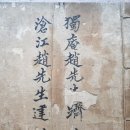 獨庵趙先生濟
滄江趙先生逮